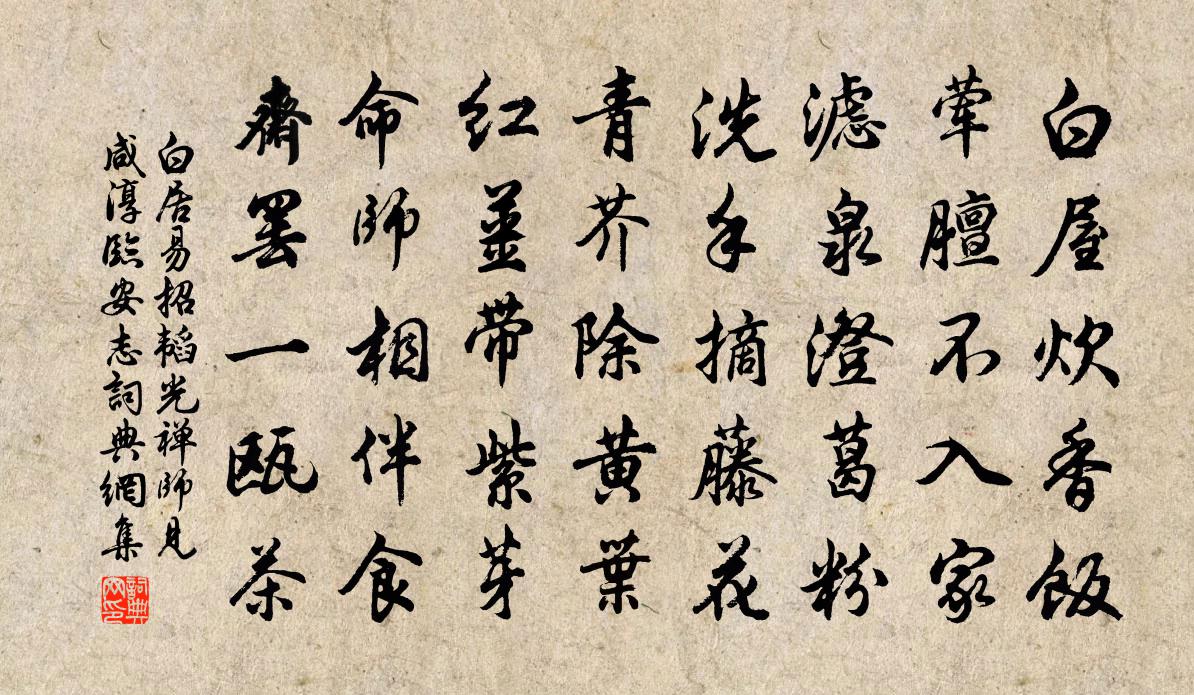 白屋炊香饭
荤膻不入家
滤泉澄葛粉
洗手摘藤花
青芥除黄葉
红薑带紫芽
命師相伴食
齋罢一瓯茶
白居易招韬光禅師見
咸淳臨安志詞典網集
詞典
网印